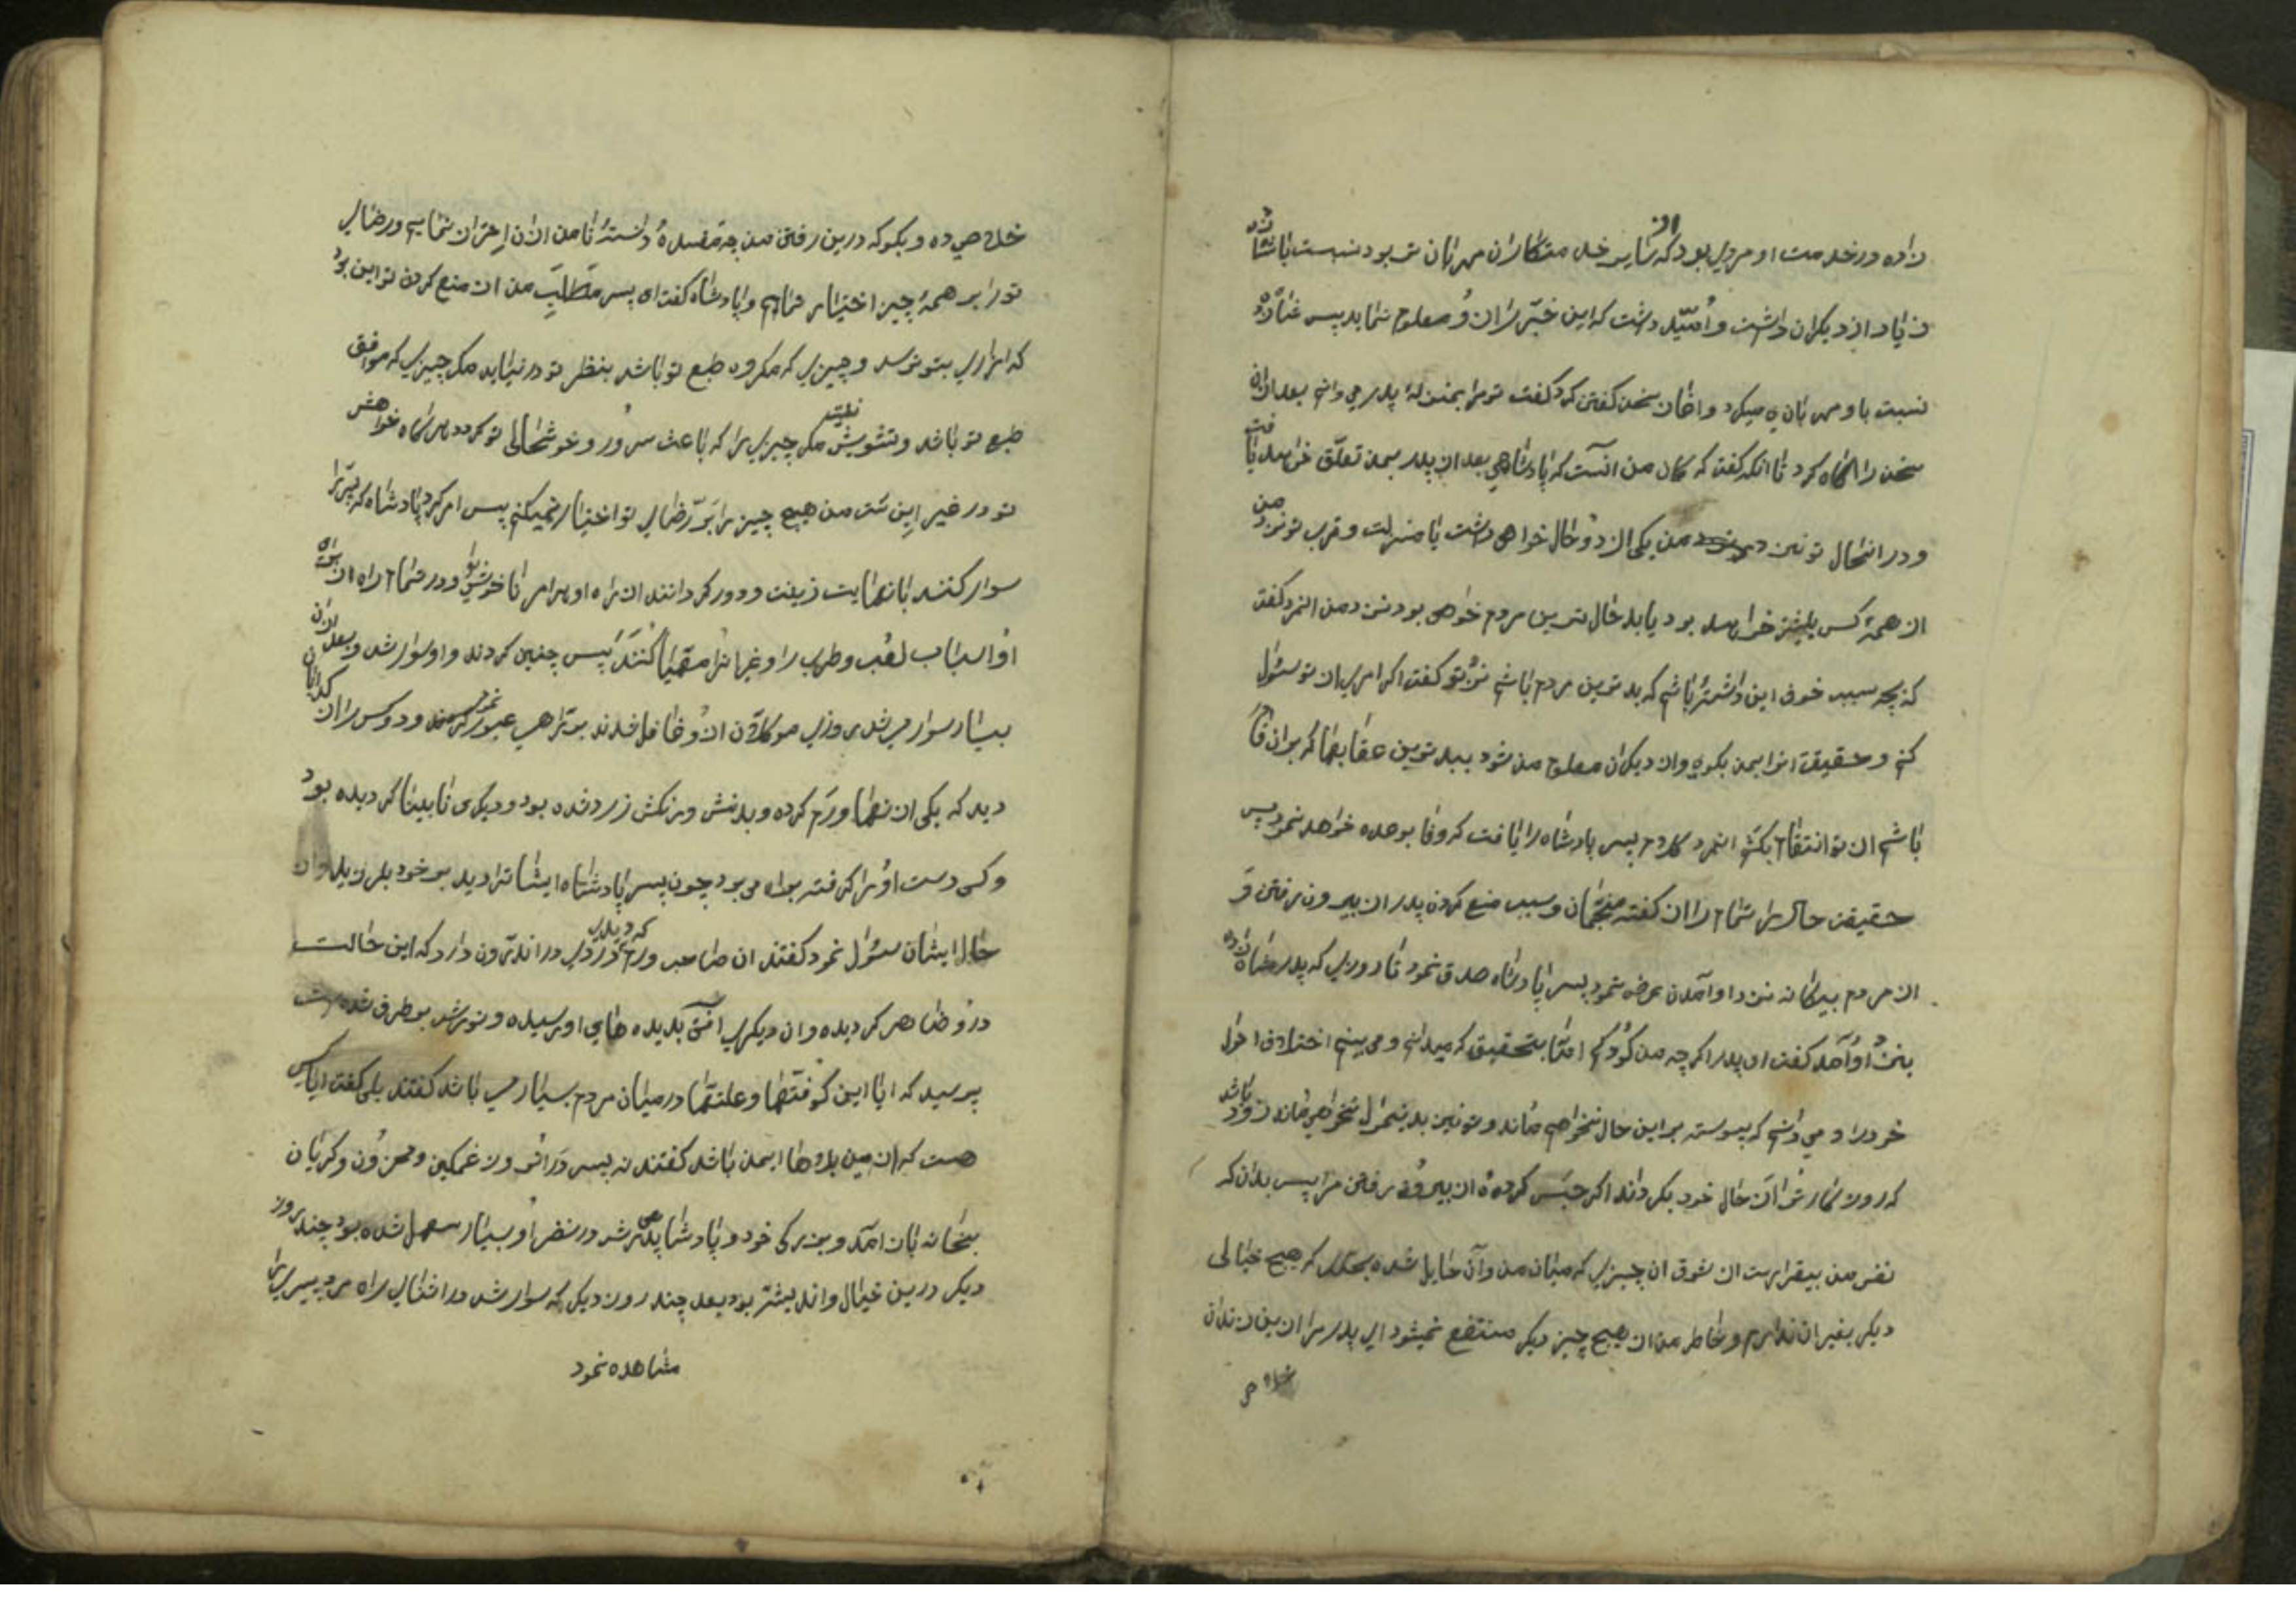 زاده در خدمت او مردی بود که از سایر خدمتکاران مهربان تر بود نسبت باشاه زاده
زیاد از دیگران داشت و امّید داشت که این خبر را از و معلوم نماید پس
نسبت باو مهربانی میکرد و اغاز سخن گفتن کرد گفت تو مرا بمنزلهٔ پدر می دانی بعد ازان
سخن را اگاه کرد تا انکه گفت که کمان من انست که پادشاهی بعد از پدر بمن تعلّق خواهد یافت
و در انحال تو نیز من یکی از دو حال خواهی داشت یا منزلت و قرب تو نزد من
از همهٔ کس بیشتر خواهد بود یا بد حال ترین مردم خواهی بود نزد من انمرد گفت
که بچه سبب خوف این داشته باشم که بد ترین مردم باشم نزد تو گفت اگر امری از تو سئوال
کنم و حقیقت انرا بمن نگوی و از دیگران معلوم من شود ببد ترین عقابها که بر ان قادر
باشم از تو انتقام بکشم انمرد کلام پسر پادشاه را یافت که وفا بوعده خواهد نمود پس
حقیقت حال را تمام را از گفته منجّمان و سبب منع کردن پدر از بیرون رفتن و
از مردم بیگانه نزد او آمدن عرض نمود پسر پادشاه صدق نمود تا روزی که پدر
بنزد او آمد گفت ای پدر اگر چه من کودکم امّا بتحقیق که میدانم و می بینم اختلاف احوال
خود را و می دانم که پیوسته بر این حال نخواهم ماند و تو نیز بدینحال نخواهی ماند زود باشد
که روزگار ترا از حال خود بگرداند اگر حبس کردهٔ از بیرون رفتن مرا پس بدان که
نفس من بیقرار است از شوق ان چیزی که میان من و آن حایل شده بحدّی که هیچ خیالی
دیگر بغیر ان ندارم و خاطر من از هیچ چیز دیگر منتفع نمیشود ای پدر مرا از این زندان
خلاصی
خلاصی ده و بگو که در بین رفتن من چه مفسدهٔ دانستهٔ تا من از ان احتراز نمایم و رضای
تو را بر همهٔ چیز اختیار نمایم و پادشاه گفت ای پسر مطلب من از منع کردن تو این بود
که ازاری بتو نرسد و چیزی که مکروه طبع تو باشد بنظر تو در نیاید مگر چیزی که موافق
طبع تو باشد و نشنوی مگر چیزی را که باعث سرور و خوشحالی تو گردد هر گاه خواهش
تو در غیر این است من هیچ چیز را بر رضای تو اختیار نمیکنم پس امر کرد پادشاه که پسر را
سوار کنند با نهایت زینت و دور گردانند از راه او هر امر ناخوشی را و در تمام راه از برای
او اسباب لعب و طرب را و غیر انرا مهیّا کنند پس چنین کردند و او سوار شد و بعد ازان
بسیار سوار می شد روزی موکلان از و غافل شدند بر راهی عبور نمود و دو کس را از گدایان
دید که یکی از انها ورم کرده و بدنش و رنگش زرد شده بود و دیگری نابینا گردیده بود
و کسی دست او را گرفته براه می برد چون پسر پادشاه ایشانرا دید بر خود بلرزید و از
حال ایشان سئوال نمود گفتند ان صاحب ورم که دیدی دردی در اندرون دارد که این حالت
درو ظاهر گردیده و ان دیگری افتی بدیده های او رسیده و نورش بر طرف شده است
پرسید که ایا این کوفتها و علتها در میان مردم بسیار می باشد گفتند بلی گفت ایا کسی
هست که از این بلاها ایمن باشد گفتند نه پس در انروز غمگین و محزون و گریان
بخانه باز آمد و بزرگی خود و پادشاهی پدرش در نظر او بسیار سهل شده بود چند روز
دیگر درین خیال و اندیشه بود بعد چند روز دیگر که سوار شد در اثنای راه مرد پیری را
مشاهده نمود